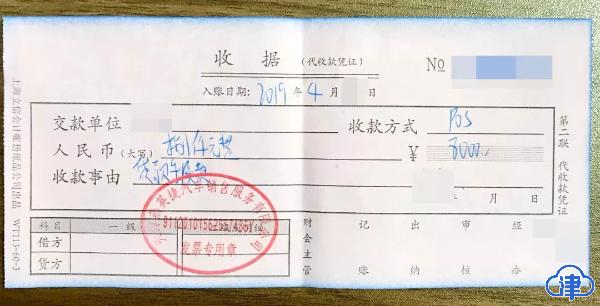 收 据 (代收款凭证) №
入账日期: 2019 年 4 月 日
交款单位 收款方式 POS
人民币(大写) 捌仟元整 ¥ 8000
收款事由
英捷汽车销售服务有限公司
发票专用章
科目 一级
借方
贷方
财会主管 记账 出纳 审核 经办
第二联 代收款凭证
上海立信会计帐册纸品公司出品 WT113-60-3
津